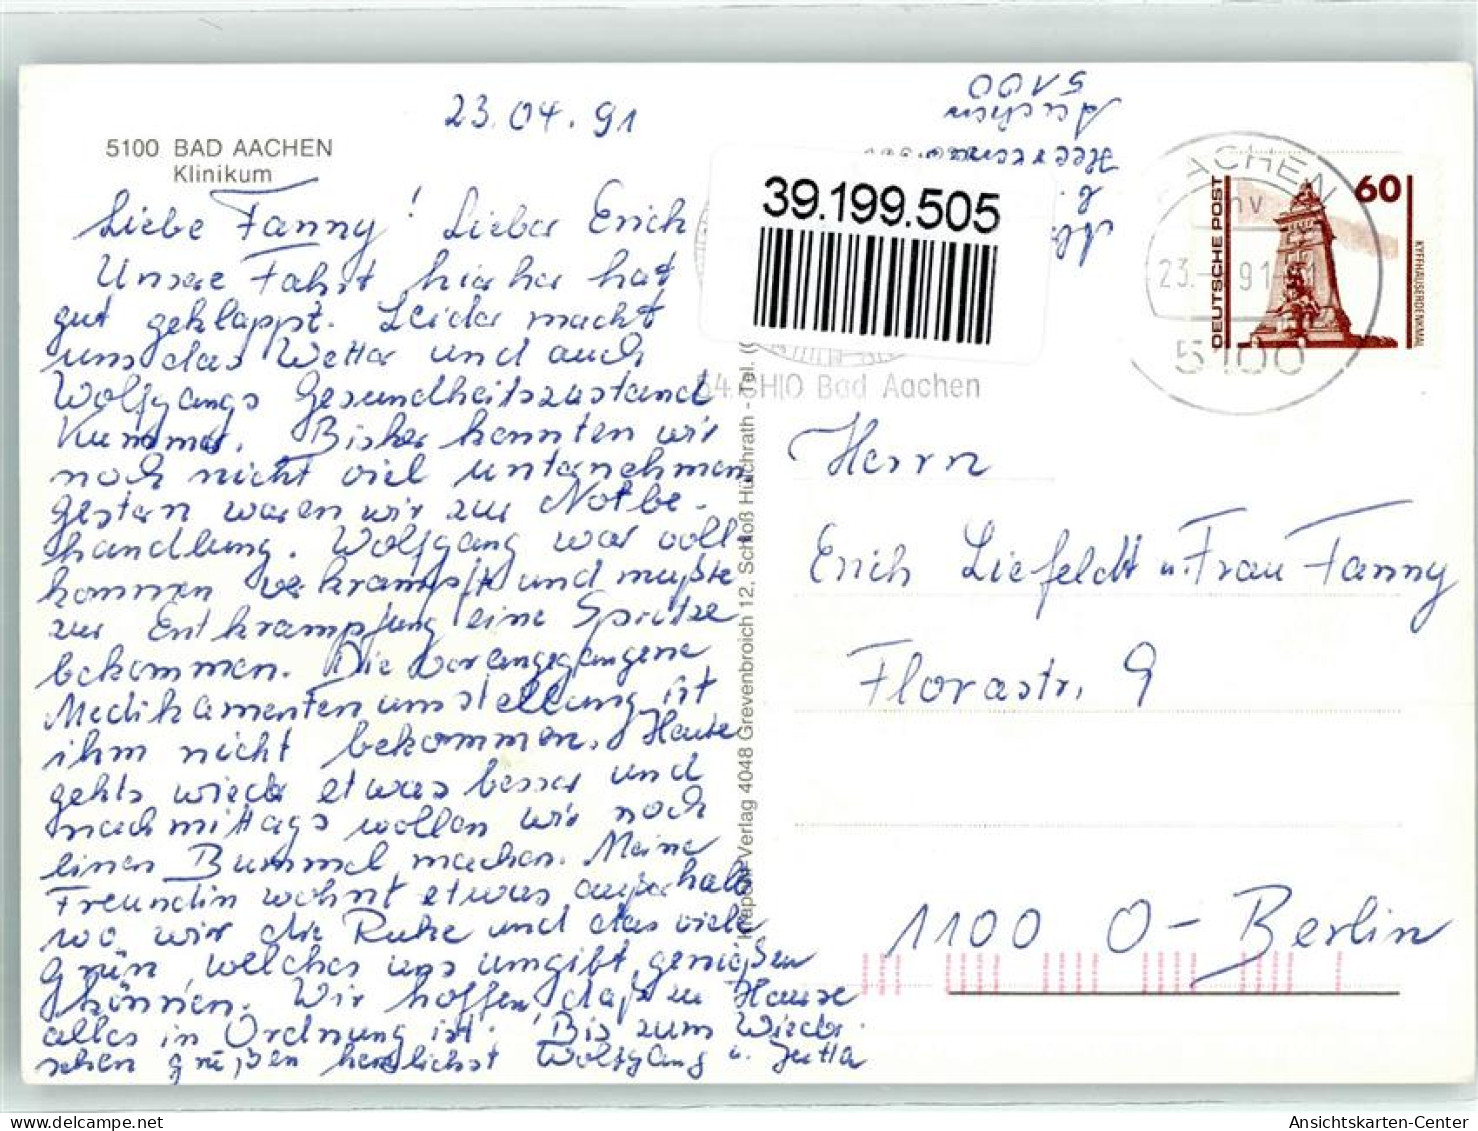 23.04.91
5100 BAD AACHEN
Klinikum
Liebe Fanny! Lieber Erich
Unsere Fahrt hierher hat
gut geklappt. Leider macht
uns das Wetter und auch
Wolfgangs Gesundheitszustand
Kummer. Bisher konnten wir
noch nicht viel unternehmen,
gestern waren wir zur Notbe-
handlung. Wolfgang war voll-
kommen verkrampft und mußte
zur Entkrampfung eine Spritze
bekommen. Die vorangegangene
Medikamentenumstellung ist
ihm nicht bekommen. Heute
gehts wieder etwas besser und
nachmittags wollen wir noch
einen Bummel machen. Meine
Freundin wohnt etwas außerhalb
wo wir die Ruhe und das viele
Grün, welches uns umgibt, genießen
können. Wir hoffen, daß zu Hause
alles in Ordnung ist. Bis zum Wieder-
sehen grüßen herzlichst Wolfgang u. Jutta
Aachen
5100
39.199.505
CHIO Bad Aachen
Verlag 4048 Grevenbroich 12, Schloß Hülchrath - Tel.
AACHEN
hv
23. 91
5100
DEUTSCHE POST
60
KYFFHÄUSERDENKMAL
Herrn
Erich Liefeldt u. Frau Fanny
Florastr. 9
1100 O-Berlin
Ansichtskarten-Center